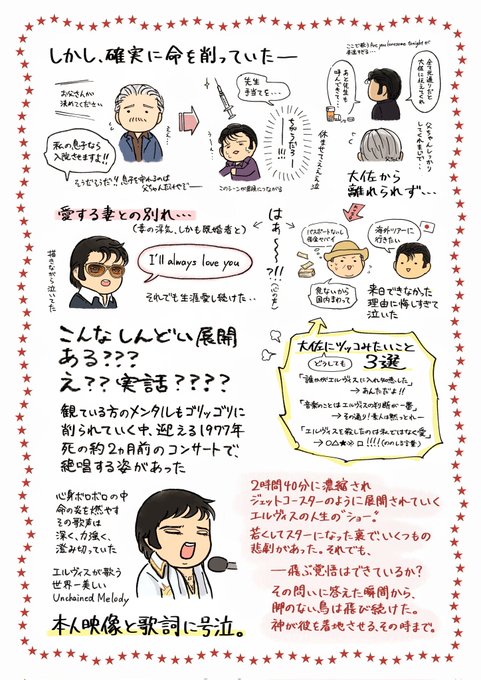 しかし、確実に命を削っていた―
お父さんが
決めてください
私の息子なら
入院させますよ!!
先生
手当てを…
ちがうだろー
!!!
休ませてええええ泣
ここで歌うAre you lonesome tonightが
あと先生も
呼んできて…
金も見通しも
父ちゃんしっかり
してくれまで…
大佐から
離れられず…
愛する妻との別れ…
(妻の浮気、しかも既婚者と)
I'll always love you
それでも生涯愛し続けた‥
描きながら泣いてた
はぁ〜〜
?!!
(心の声)
パスポートないし
借金ヤバイ
危ないから
国内まわって
海外ツアーに
行きたい
来日できなかった
理由に悔しすぎて
泣いた
こんなしんどい展開
ある???
え??実話????
観ている方のメンタルもゴリッゴリに
削られていく中、迎える1977年
死の約2ヵ月前のコンサートで、
絶唱する姿があった
大佐にツッコみたいこと
どうしても
3選
「誰かがエルヴィスに入れ知恵した」
→あんただよ!!
「音楽のことはエルヴィスの判断が一番」
→その通り!素人は黙っとれー
「エルヴィスを殺したのは私ではなく愛」
→○△★※□!!!!(ののしる言葉)
心身ボロボロの中
命の炎を燃やす
その歌声は
深く、力強く、
澄み切っていた
エルヴィスが歌う
世界一美しい
Unchained Melody
本人映像と歌詞に号泣。
2時間40分に濃縮され
ジェットコースターのように展開されていく
エルヴィスの人生の"ショー"。
若くしてスターになった裏で、いくつもの
悲劇があった。それでも、
―飛ぶ覚悟はできているか?
その問いに答えた瞬間から、
脚のない鳥は飛び続けた。
神が彼を着地させる、その時まで。